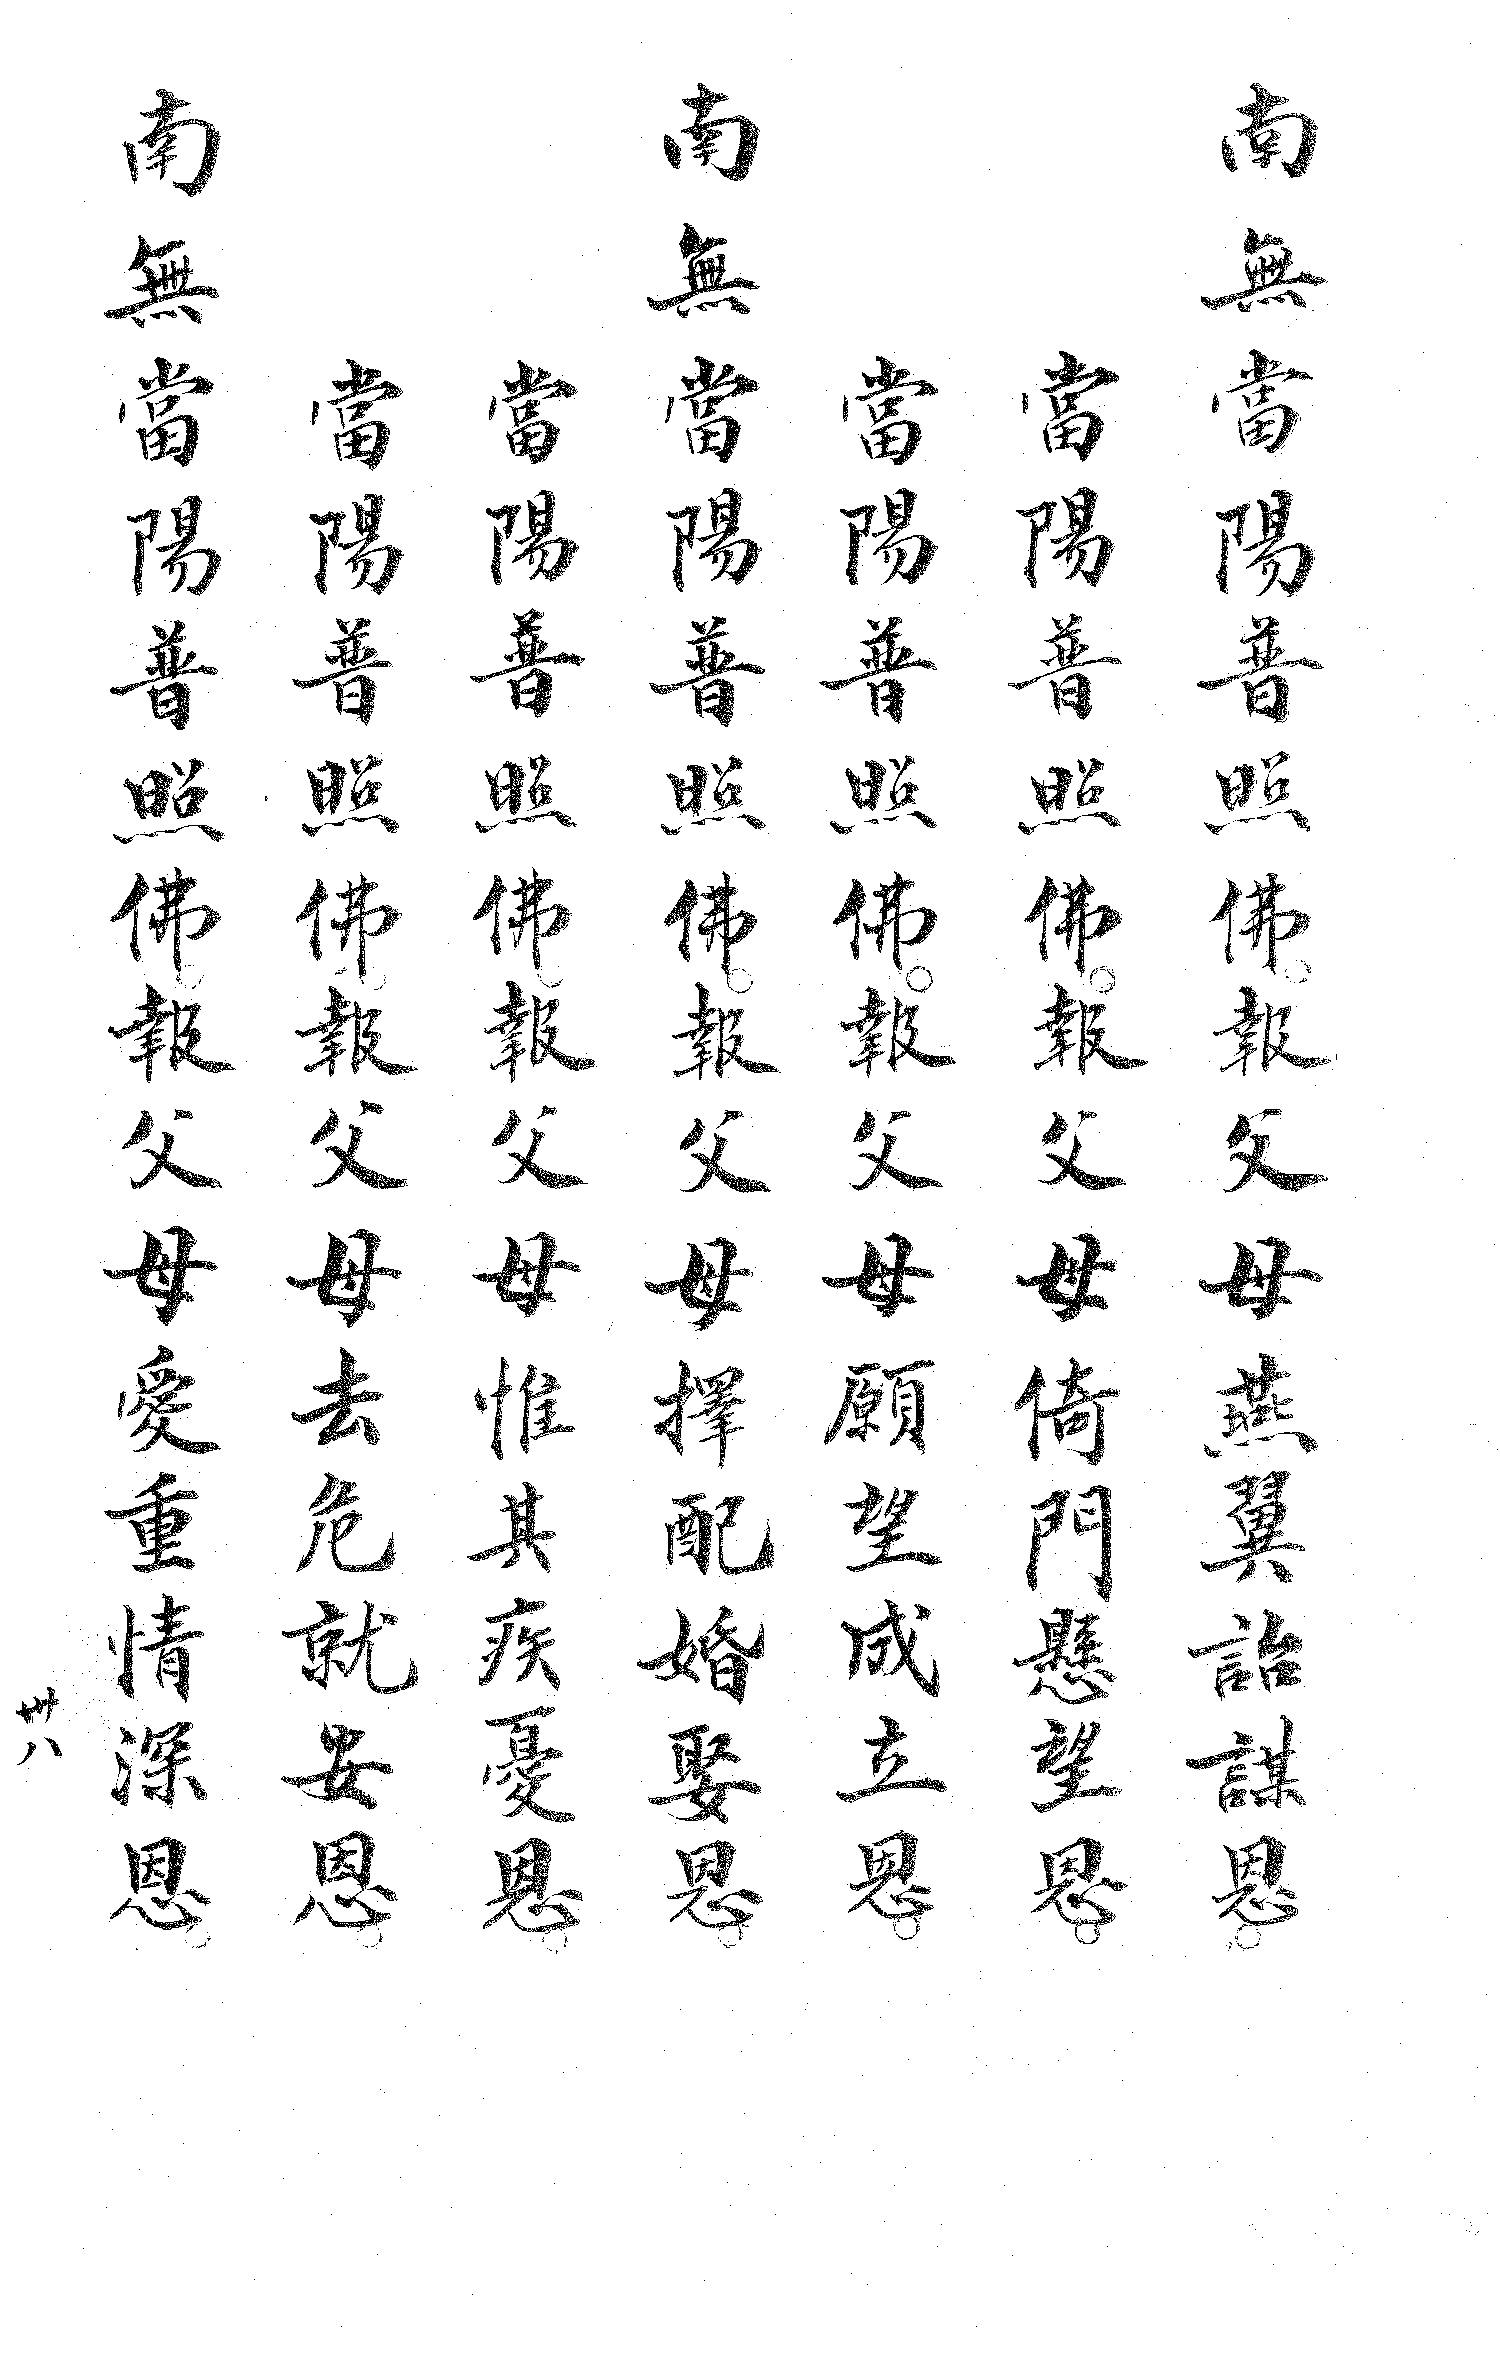 南無當陽普照佛。報父母燕翼詒謀恩。
當陽普照佛。報父母倚門懸望恩。
當陽普照佛。報父母願望成立恩。
南無當陽普照佛。報父母擇配婚娶恩。
當陽普照佛。報父母惟其疾憂恩。
當陽普照佛。報父母去危就安恩。
南無當陽普照佛。報父母愛重情深恩。
卅八